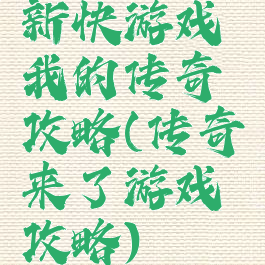 新快游戏
我的传奇
攻略(传奇
来了游戏
攻略)